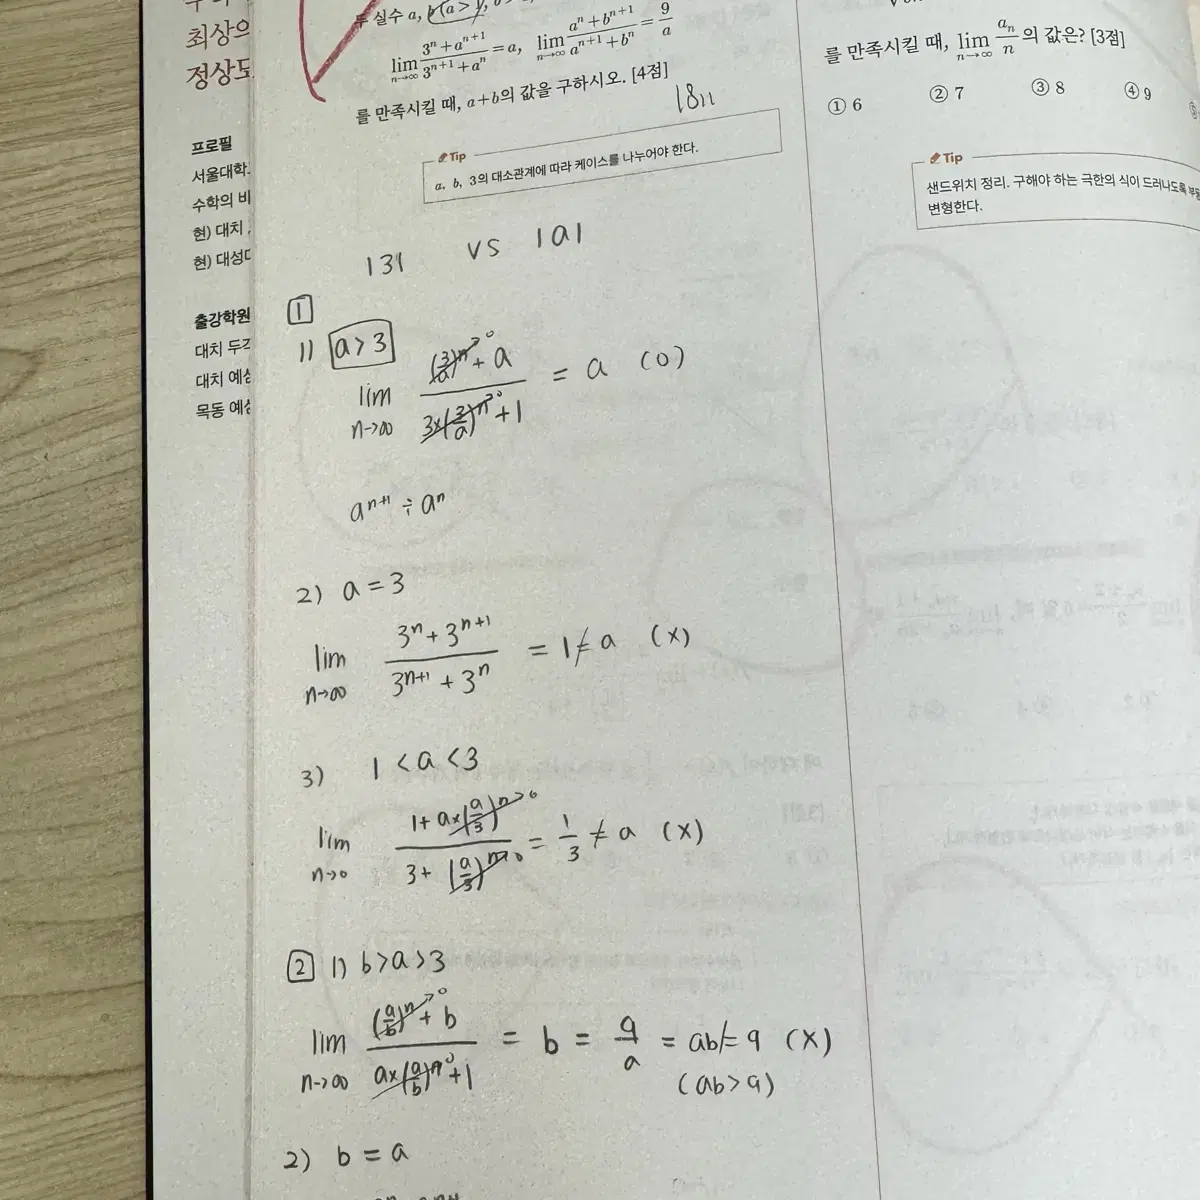 최상의
정상도
프로필
서울대학
수학의 비
현) 대치
현) 대성
출강학원
대치 두각
대치 예섬
목동 예섬
두 실수 a, b (a > 1,
lim n→∞ (3ⁿ + aⁿ⁺¹)/(3ⁿ⁺¹ + aⁿ) = a, lim n→∞ (aⁿ + bⁿ⁺¹)/(aⁿ⁺¹ + bⁿ) = 9/a
를 만족시킬 때, a+b의 값을 구하시오. [4점]
18
Tip
a, b, 3의 대소관계에 따라 케이스를 나누어야 한다.
|3| vs |a|
1
1) a > 3
lim n→∞ ((3/a)ⁿ→0 + a)/(3×(3/a)ⁿ→0 + 1) = a (O)
aⁿ⁺¹ ÷ aⁿ
2) a = 3
lim n→∞ (3ⁿ + 3ⁿ⁺¹)/(3ⁿ⁺¹ + 3ⁿ) = 1 ≠ a (X)
3) 1 < a < 3
lim n→∞ (1 + a×(a/3)ⁿ→0)/(3 + (a/3)ⁿ→0) = 1/3 ≠ a (X)
2 1) b > a > 3
lim n→∞ ((a/b)ⁿ→0 + b)/(a×(a/b)ⁿ→0 + 1) = b = 9/a = ab ≠ 9 (X)
(ab > 9)
2) b = a
를 만족시킬 때, lim n→∞ aₙ/n 의 값은? [3점]
① 6 ② 7 ③ 8 ④ 9
Tip
샌드위치 정리. 구해야 하는 극한의 식이 드러나도록 부등
변형한다.